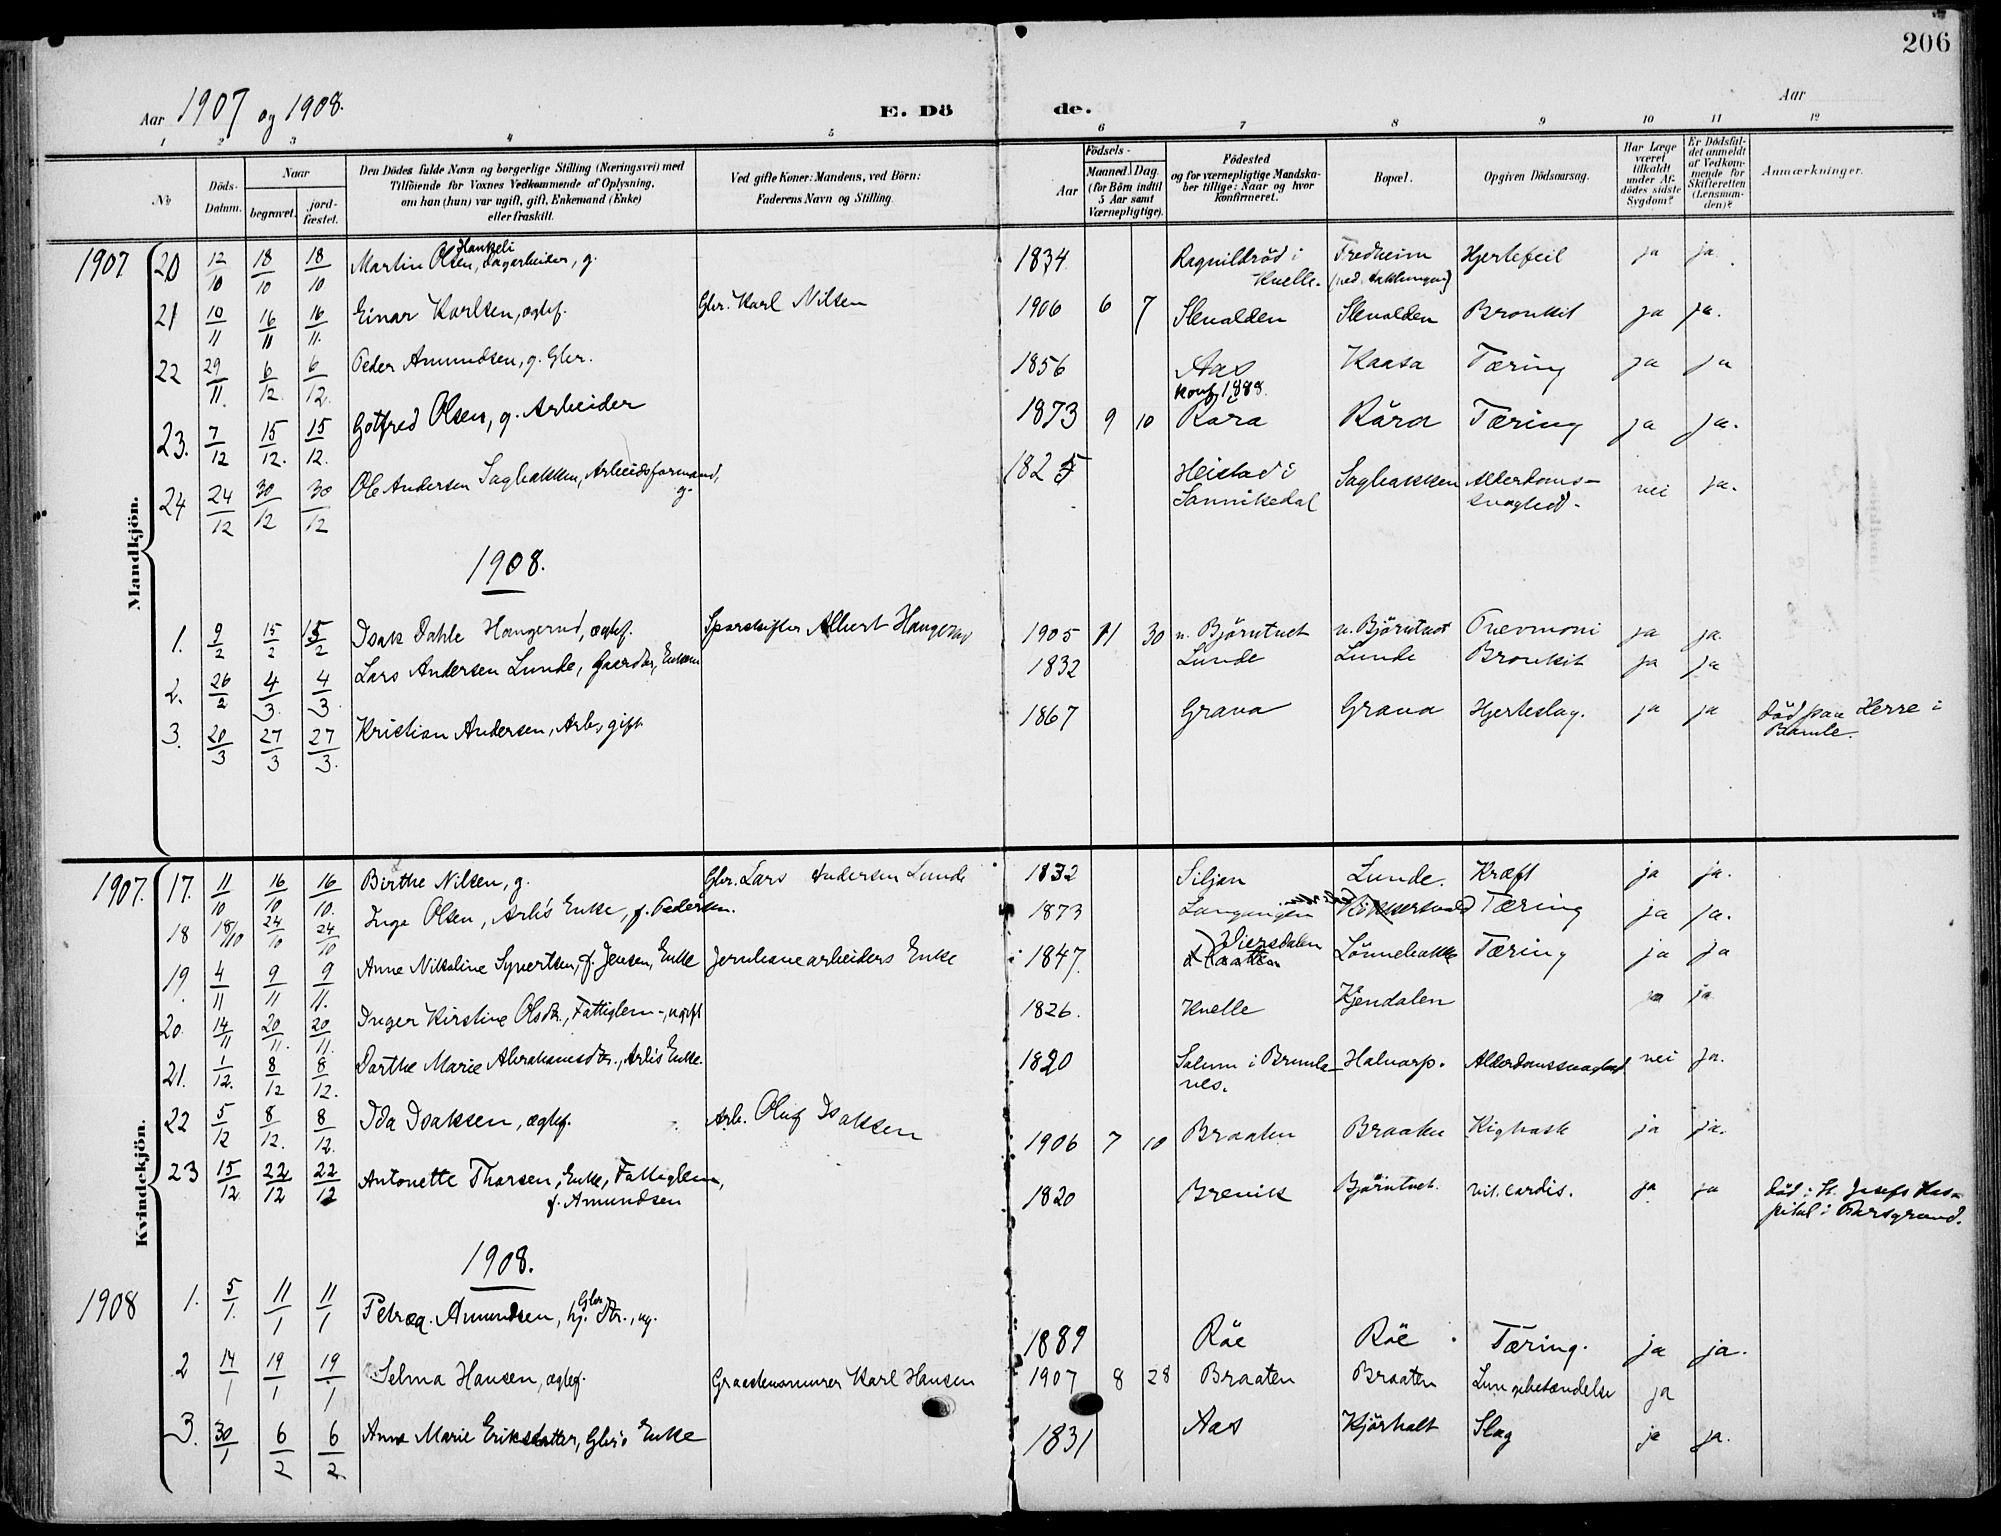 206
Aar 1907 og 1908.
E. Döde.
Aar
1 2 3 4 5 6 7 8 9 10 11 12
No
Döds-Datum.
Naar
begravet.
jord-fæstet.
Den Dödes fulde Navn og borgerlige Stilling (Næringsvei) med
Tilföiende for Voxnes Vedkommende af Oplysning,
om han (hun) var ugift, gift, Enkemand (Enke)
eller fraskilt.
Ved gifte Koner: Mandens, ved Börn:
Faderens Navn og Stilling.
Födsels-
Aar
Maaned. Dag.
(for Börn indtil
5 Aar samt
Værnepligtige).
Födested
og for værnepligtige Mandska-
ber tillige: Naar og hvor
konfirmeret.
Bopæl.
Opgiven Dödsaarsag.
Har Læge
været
tilkaldt
under Af-
dödes sidste
Sygdom?
Er Dödsfal-
det anmeldt
af Vedkom-
mende for
Skifteretten
(Lensman-
den)?
Anmærkninger.
Mandkjön.
1907 20 12/10 18/10 18/10 Martin Olsen Haukeli, dagarbeider, g. 1834 Ragnildröd i Kvelle. Fredheim Hjertefeil ja ja
21 10/11 16/11 16/11. Einar Karlsen, ægtef. Gbr. Karl Nilsen 1906 6 7 Stenalden Stenalden Bronkit ja ja.
22 29/11. 6/12. 6/12. Peder Amundsen, g. Gbr. 1856 Aas Kaasa Tæring ja ja
23. 7/12 15/12. 15/12. Gotfred Olsen, g. Arbeider 1873 9 10 konf. 1888. Rara Råra Tæring ja ja.
24 24/12 30/12 30/12 Ole Andersen Sagbakken, Arbeidsformand, g. 1825 Heistad i Sannikedal Sagbakken Alderdoms-svaghed. nei ja.
1908.
1. 9/2 15/2 15/2 Isak Dahle Haugerud, ægtef. Sporskifter Albert Haugerud 1905 11 30 n. Björntvet n. Björntvet Pnevmoni ja ja.
2. 26/2 4/3. 4/3. Lars Andersen Lunde, Gaardbr., Enkem 1832 Lunde Lunde Bronkit ja ja
3. 20/3 27/3 27/3. Kristian Andersen, Arb., gift 1867 Grava Grava Hjerteslag. ja ja Död paa Herre i Bamle.
Kvindekjön.
1907. 17. 11/10 16/10 16/10. Birthe Nilsen, g. Gbr. Lars Andersen Lunde 1832 Siljan Lunde. Kræft ja ja.
18 18/10 24/10 24/10 Inga Olsen, Arb's Enke, f. Pedersen. 1873 Langangen Tæring ja ja.
19. 4/11 9/11 9/11. Anne Nikoline Syvertsen, f. Jensen, Enke Jernbanearbeiders Enke 1847. Viersdalen Lönnebakke Tæring ja ja
20. 14/11 20/11. 20/11. Inger Kirstine Olsdtr., Fattiglem-, ugift 1826. Kvelle Kjendalen ja ja
21. 1/12. 8/12 8/12. Dorthe Marie Abrahamsdtr., Arb's Enke. 1820 Salum i Brunla-nes. Halvarp. Alderdomssvaghed nei ja.
22 5/12 8/12. 8/12. Ida Isaksen, ægtef. Arb. Oluf Isaksen 1906 7 10 Braaten Braaten Kighoste ja ja.
23 15/12 22/12 22/12 Antonette Thorsen, Enke, Fattiglem, f. Amundsen 1820 Brevik Björntvet. vit. cordis. ja ja Död i St. Josefs Hos-pital i Porsgrund.
1908.
1908 1. 5/1. 11/1 11/1 Petrea Amundsen, hj. Gbr. Dtr., ug. 1889 Röe Röe Tæring. ja ja.
2 14/1 19/1 19/1 Selma Hansen, ægtef. Graastensmurer Karl Hansen 1907 8 28 Braaten Braaten Lungebetændelse ja
3. 30/1 6/2 6/2. Anne Marie Eriksdatter, Gbr's Enke 1831 Aas Kjörholt Slag ja ja.